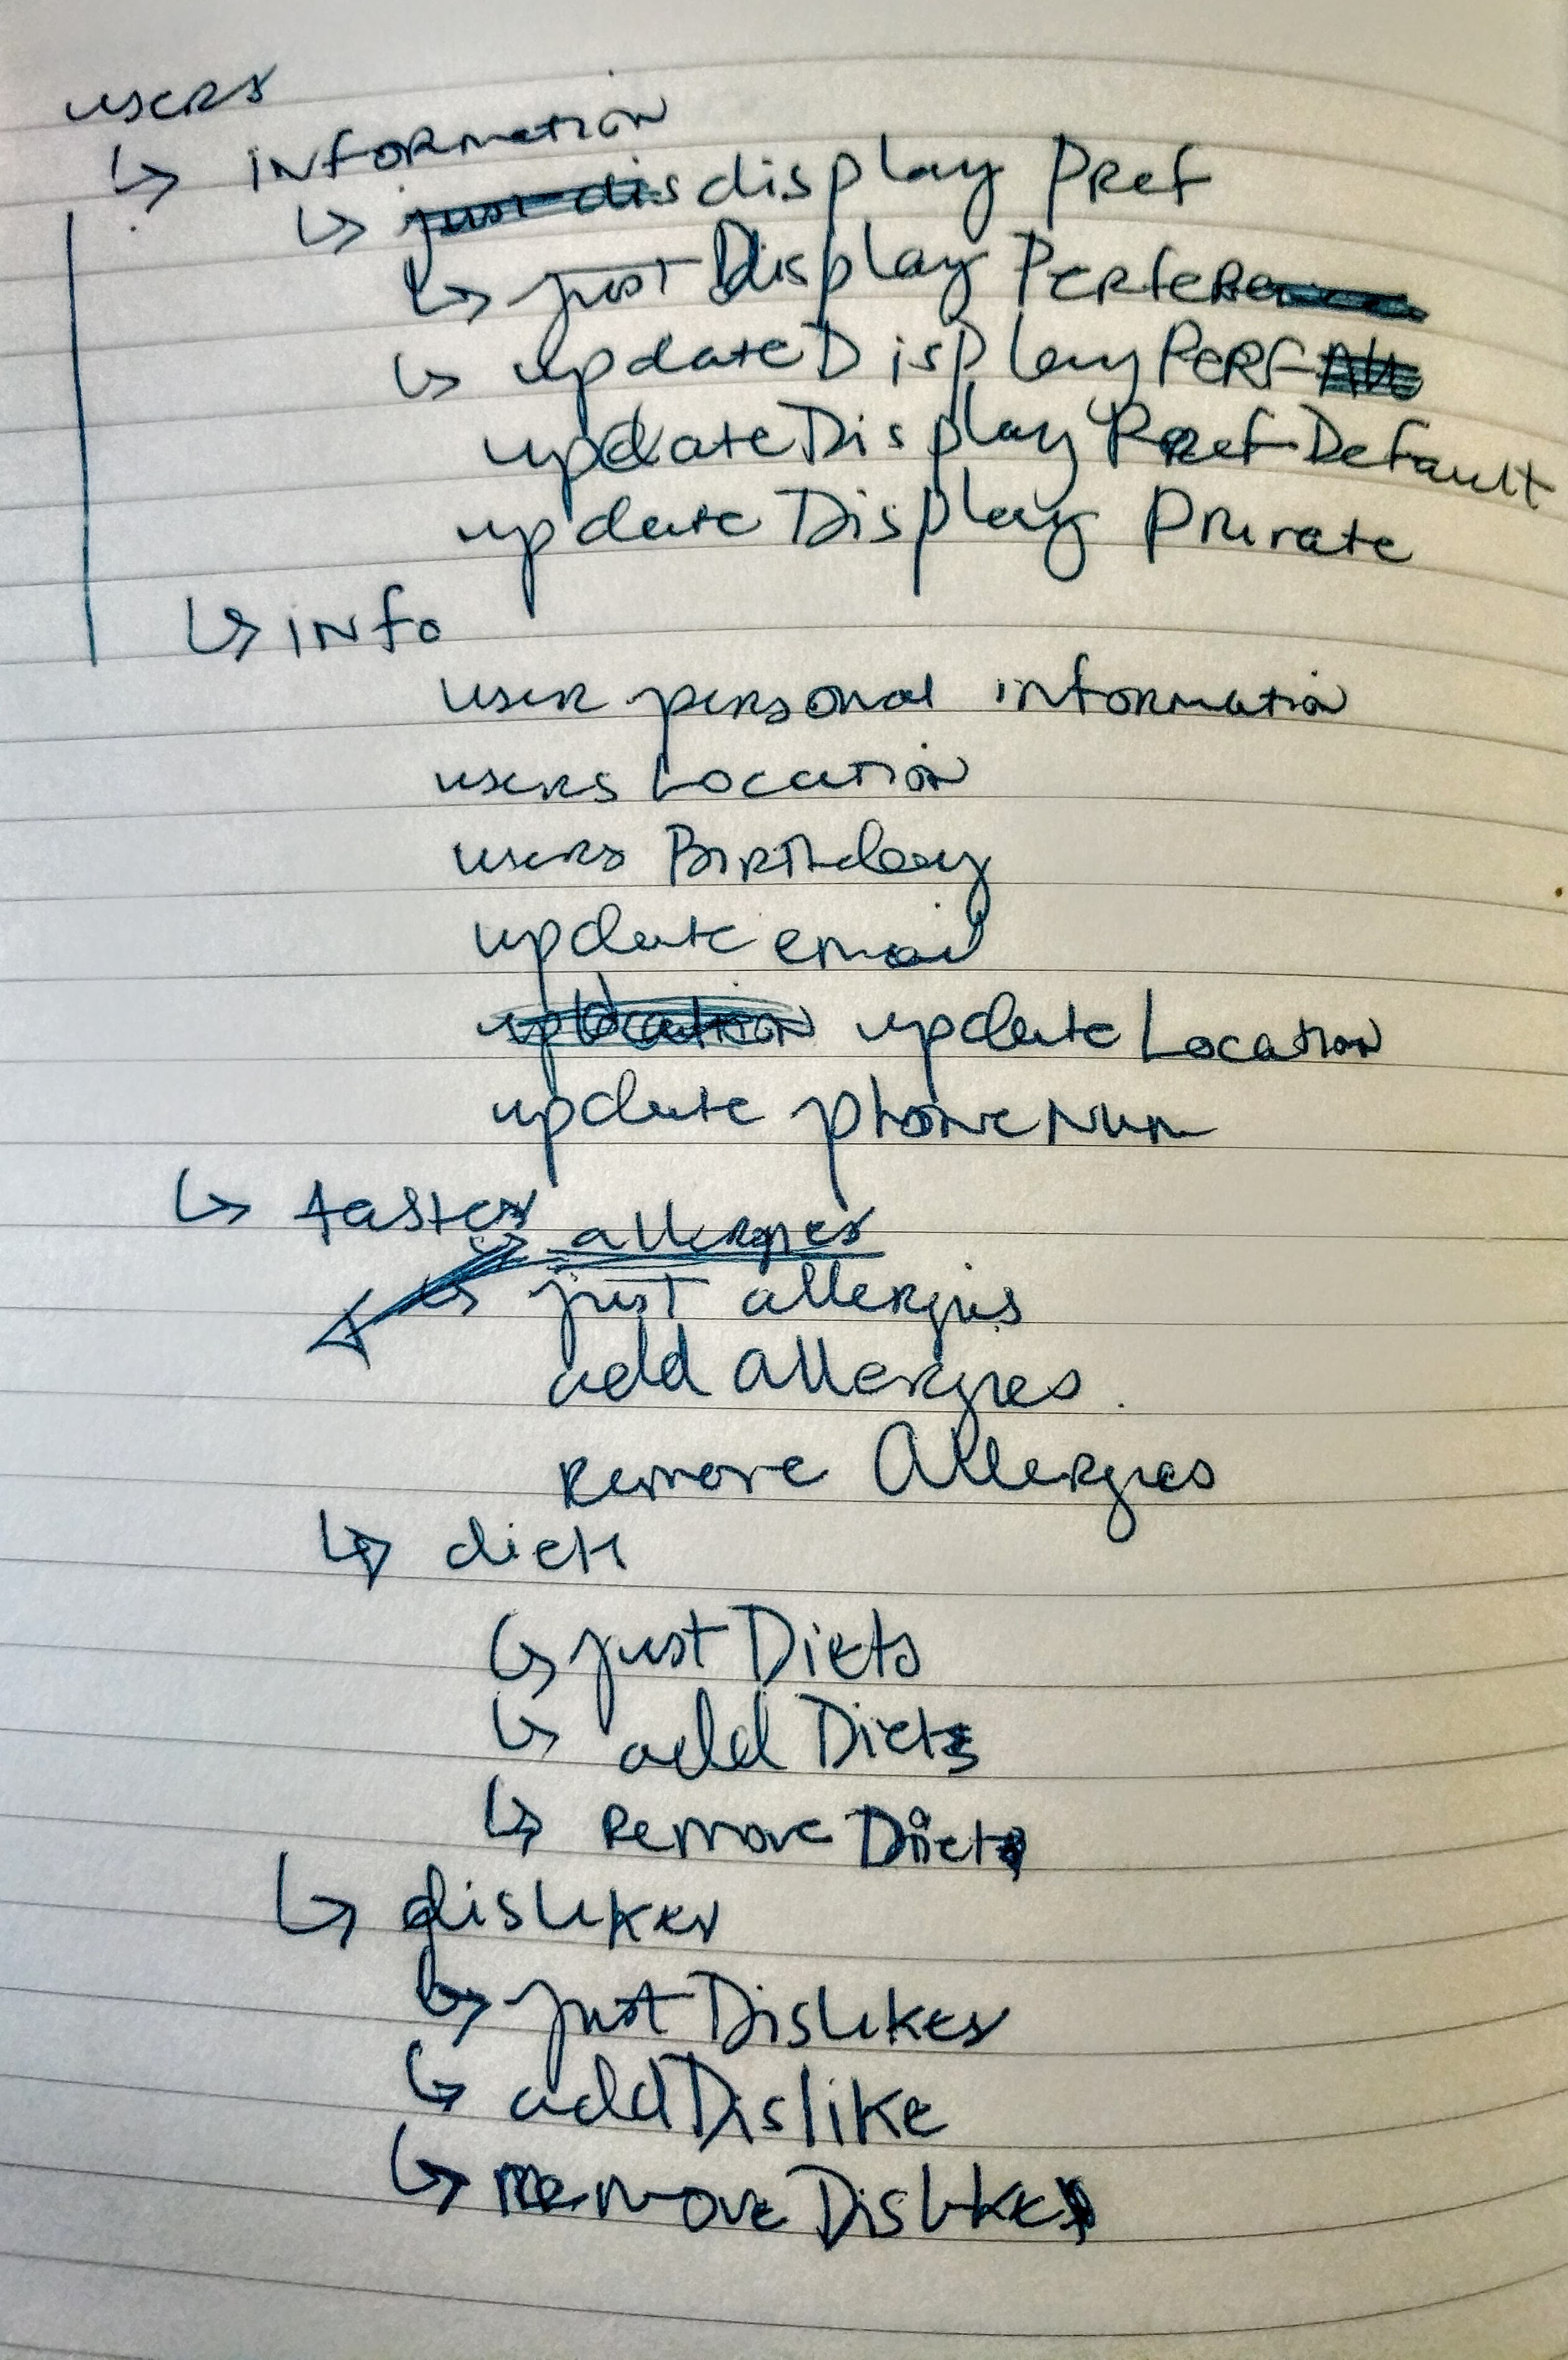 users
↳ information
↳ display Pref
↳ just Display Perfere
↳ updateDisplayPERF
updateDisplayPrefDefault
updateDisplay Private
↳ info
user personal information
users Location
users Birthday
update email
update Location
update phoneNum
↳ tastes
allergies
↳ just allergies
add allergies.
remove Allergies
↳ diets
↳ just Diets
↳ add Diets
↳ remove Diet
↳ dislikes
↳ just Dislikes
↳ addDislike
↳ removeDislike